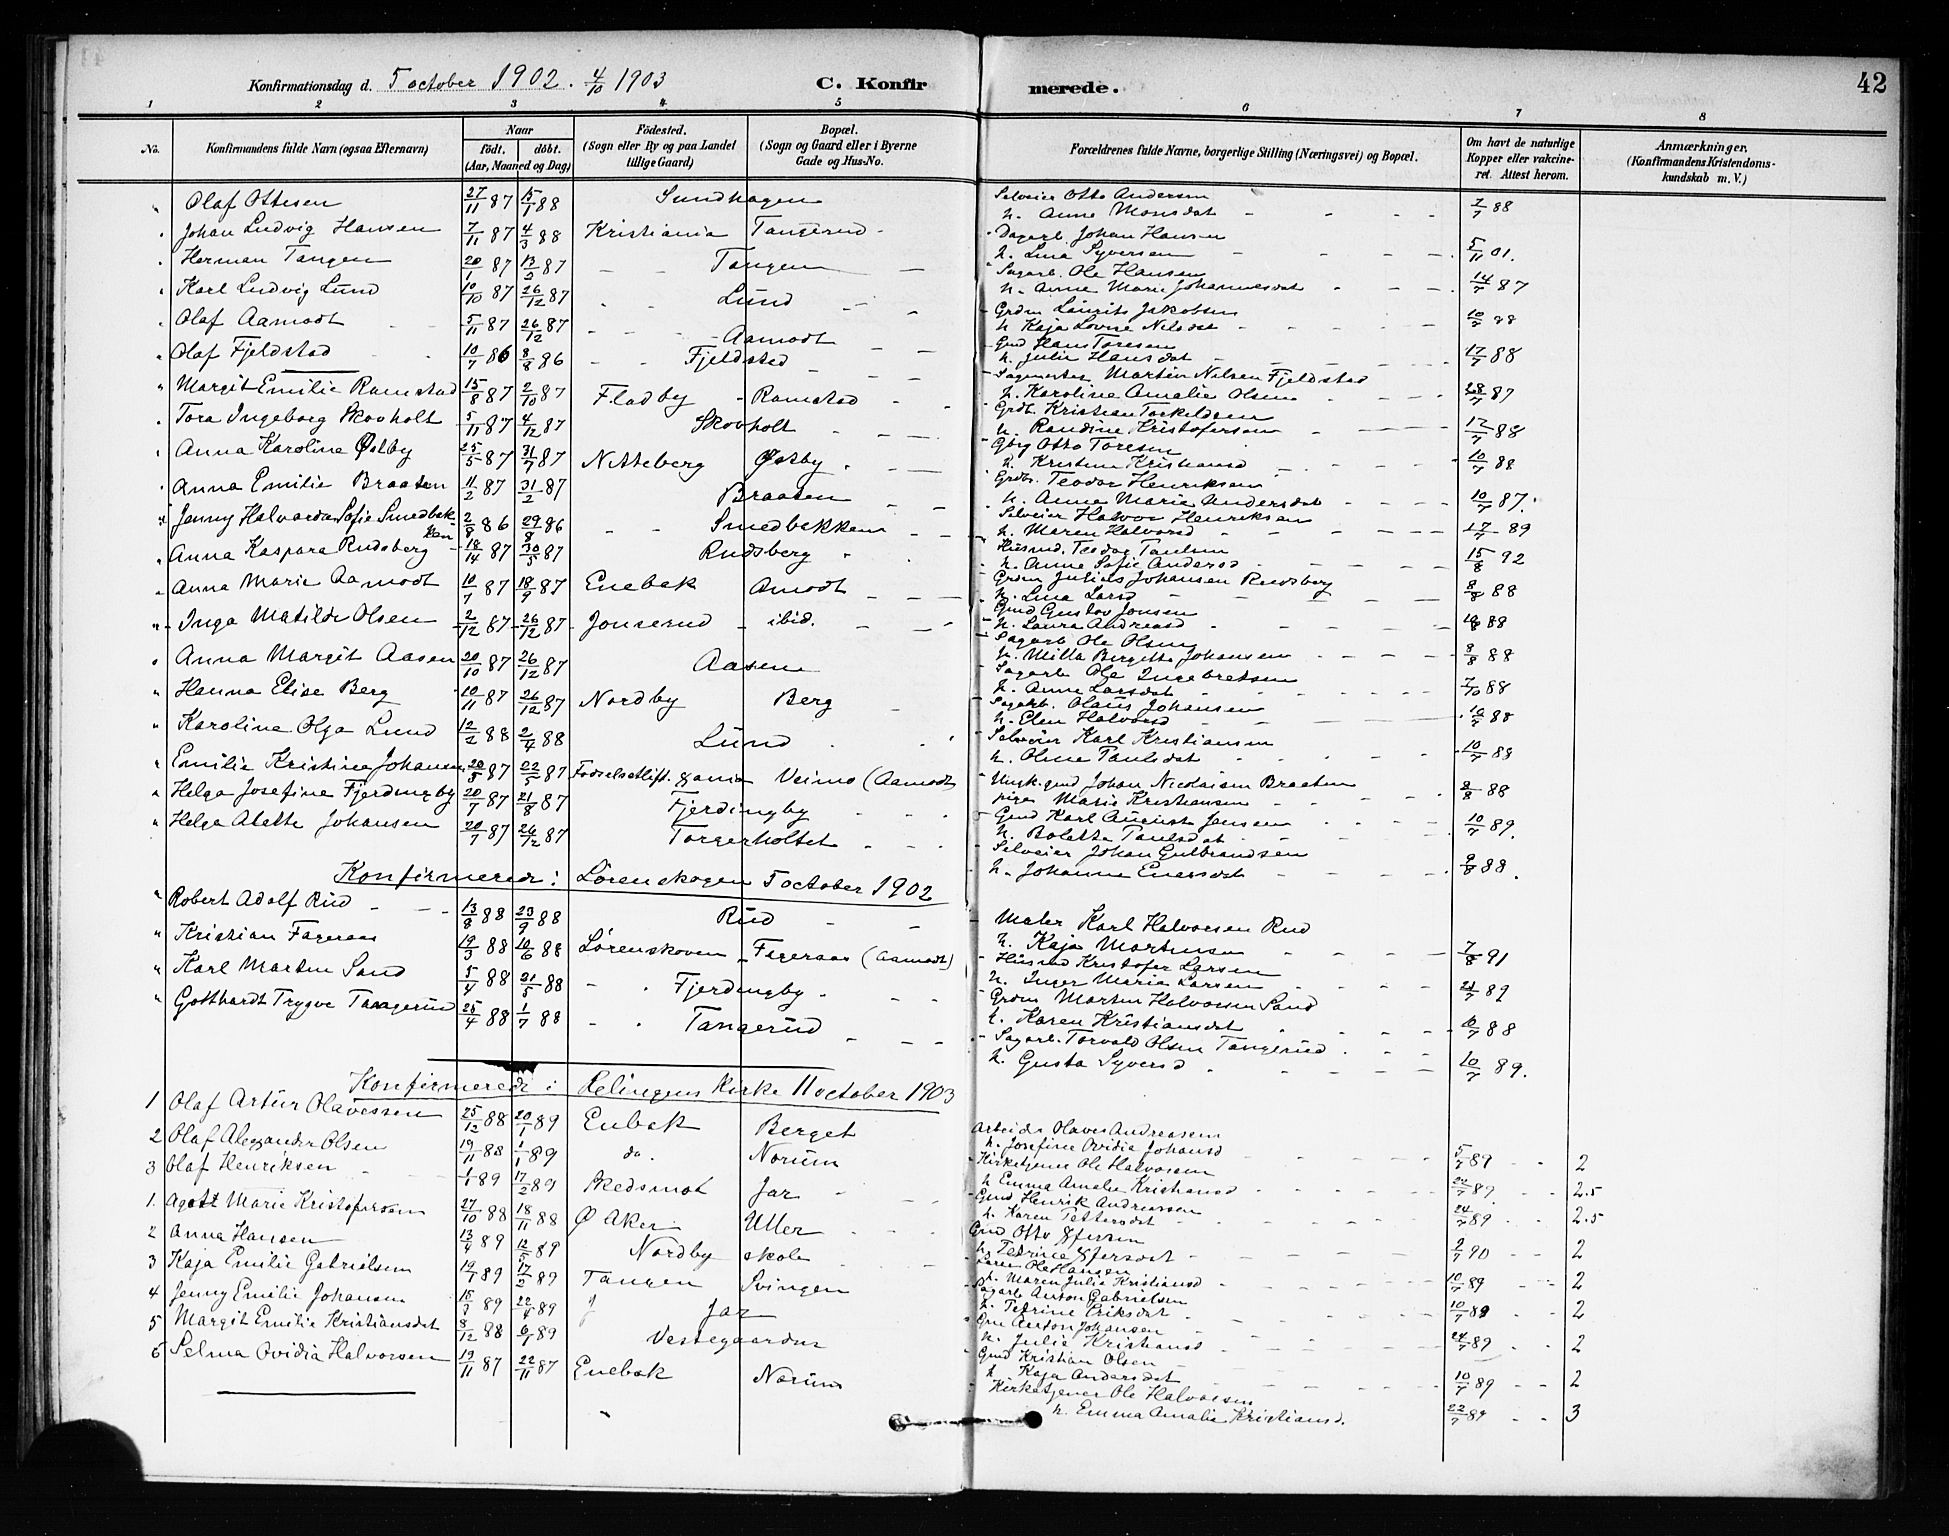 Konfirmationsdag d. 5 october 1902. 4/10 1903
C. Konfirmerede.
42
1 2 3 4 5 6 7 8
No.
Konfirmandens fulde Navn (ogsaa Efternavn)
Naar
födt. döbt.
(Aar, Maaned og Dag)
Födested.
(Sogn eller By og paa Landet
tillige Gaard)
Bopæl.
(Sogn og Gaard eller i Byerne
Gade og Hus-No.
Forældrenes fulde Navne, borgerlige Stilling (Næringsvei) og Bopæl.
Om havt de naturlige
Kopper eller vakcine-
ret. Attest herom.
Anmærkninger,
(Konfirmandens Kristendoms-
kundskab m. V.)
" Olaf Ottesen 27/11 87 15/1 88 Sundhagen Selveier Otto Andersen h. Anne Monsdat 7/7 88
" Johan Ludvig Hansen 7/11 87 4/3 88 Kristiania Tangerud Dagarb. Johan Hansen h. Lina Syversen 5/11 01.
" Herman Tangen 20/1 87 13/2 87 Tangen Sagarb. Ole Hansen h. Anne Marie Johannesdat 14/7 87
" Karl Ludvig Lund 10/10 87 26/12 87 Lund Grdm Laurits Jakobsen h Kaja Lovise Nilsdat 10/7 88
" Olaf Aamodt 5/11 87 26/12 87 Aamodt Gmd Hans Toresen h. Julie Hansdat 17/7 88
" Olaf Fjeldstad 10/7 86 8/8 86 Fjeldstad Sagmester Martin Nilsen Fjeldstad h. Karoline Amalie Olsen 28/7 87
" Margit Emilie Ramstad 15/8 87 2/10 87 Fladby Ramstad Grdb. Kristian Torkeldsen h. Randine Kristofersen 17/7 88
" Tora Ingeborg Skovholt 5/11 87 4/12 87 Skovholt Gbrg Otto Toresen h. Kristine Kristiansd 10/7 88
" Anna Karoline Østby 25/5 87 31/7 87 Nitteberg Østby Grdbr. Teodor Henriksen h. Anne Marie Andersdat 10/7 87.
" Anna Emilie Braaten 11/2 87 31/2 87 Braaten Selveier Halvor Henriksen h. Maren Halvorsd 17/7 89
" Jenny Halvarda Sofie Smedbakken 2/8 86 29/8 86 Smedbakken Husmd. Teodor Paulsen h. Anne Sofie Andersd 15/8 92
" Anna Kaspara Rudsberg 18/14 87 30/5 87 Rudsberg Grdm Julius Johansen Rudsberg h. Lina Larsd 8/8 88
" Anna Marie Aamodt 10/7 87 18/9 87 Enebak Amodt Gmd Gustav Jonsen h. Laura Andreasd 88
" Inga Matilde Olsen 2/12 87 26/12 87 Jonserud ibid. Sagarb Ole Olsen h. Milla Bergette Johansen 8/8 88
" Anna Margit Aasen 20/10 87 26/12 87 Aasen Sagarb Ole Ingebretsen h. Anne Larsdat 7/10 88
" Hanna Elise Berg 10/11 87 26/12 87 Nordby Berg Sagarb. Olaus Johansen h. Elen Halvorsd 10/7 88
" Karoline Olga Lund 12/2 88 2/4 88 Lund Selveier Karl Kristiansen h. Oline Paulsdat 10/7 88
" Emilie Kristine Johansen 20/5 87 22/5 87 Fødselsstift. Xania Veimo (Aamodt Ungk. gmd Johan Nicolaisen Braaten pige Marie Kristiansen 8/8 88
" Helga Josefine Fjerdingby 20/7 87 21/8 87 Fjerdingby Gmd Karl August Jensen h. Bolette Paulsdat 10/7 89.
" Helga Alette Johansen 20/7 87 26/12 87 Torgerholtet Selveier Johan Gulbrandsen h. Johanne Enersdat 9/8 88.
Konfirmerede i Lørenskogen 5 october 1902
" Robert Adolf Rud 13/8 88 23/9 88 Rud Maler Karl Halvorsen Rud h. Kaja Martinsen 7/8 91
" Kristian Fageraas 19/3 88 10/6 88 Lørenskoven Fageraas (Aamodt) Husmd Kristofer Larsen h. Inger Marie Larsen 21/7 89
" Karl Martin Sand 5/4 88 21/5 88 Fjerdingby Grdm Martin Halvorsen Sand h. Karen Kristiansdat 10/7 88
" Gotthardt Trygve Tangerud 25/4 88 1/7 88 Tangerud Sagarb. Torvald Olsen Tangerud h. Gusta Syversd 10/7 89.
Konfirmerede i Relingens Kirke 11 october 1903
1 Olaf Artur Olavessen 25/12 88 20/1 89 Enebak Berget Arbeider Olaves Andreasen h. Josefine Ovidia Johansd 5/7 89 2
2 Olaf Alexander Olsen 19/11 88 1/1 89 do. Norum Kirketjener Ole Halvorsen h Emma Amalie Kristiansd 22/7 89 2.5
3 Olaf Henriksen 1/1 89 17/2 89 Skedsmot Jar Gmd Henrik Andreassen h. Karen Pettersdat 24/7 89 2.5
1. Agott Marie Kristofersen 27/10 88 18/11 88 Ø Aker Uller Gmd Otto h. Petrine 2/7 90 2
2 Anna Hansen 13/4 89 12/5 89 Nordby skole Lærer Ole Hansen h. Maren Julie Kristiansd 10/7 89 2
3 Kaja Emilie Gabrielsen 19/1 89 17/2 89 Tangen Svingen Sagarb Anton Gabrielsen h. Petrine Eriksdat 10/7 89 2
4 Jenny Emilie Johansen 15/3 89 22/4 89 Jar Gm Anton Johansen h. Julie Kristiansd 24/7 89 2
5 Margit Emilie Kristiansdat 8/12 88 6/1 89 Vestegaarden Gmd Kristian Olsen h Kaja Andersdat 10/7 89 2
6 Selma Ovidia Halvorsen 19/11 87 22/11 87 Enebak Norum Kirketjener Ole Halvorsen h. Emma Amalie Kristiansd. 22/7 89 3